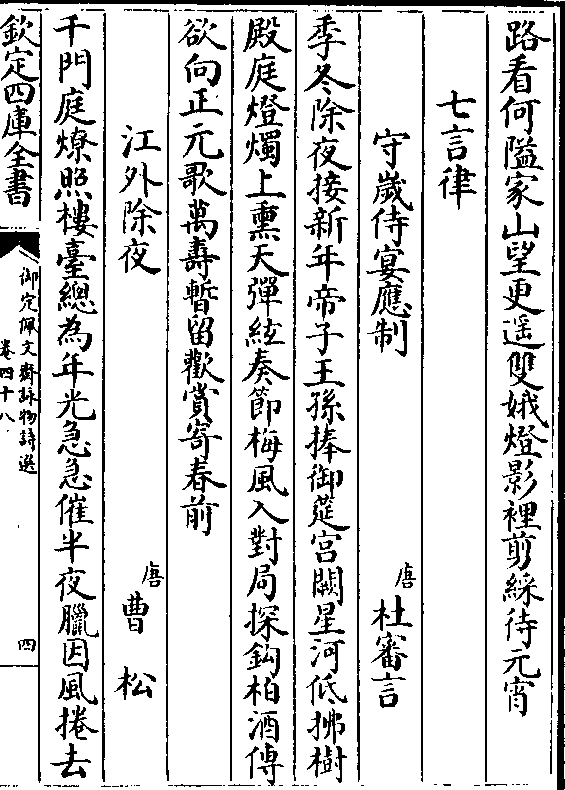 路看何隘家山望更遥雙娥燈影裡剪綵待元宵
七言律
守歲侍宴應制 唐 杜審言
季冬除夜接新年帝子王孫捧御筵宫闕星河低拂樹
殿庭燈燭上熏天彈絃奏節梅風入對局探鈎柏酒傳
欲向正元歌萬壽暫留歡賞寄春前
江外除夜 唐 曹松
千門庭燎照樓臺總為年光急急催半夜臘因風捲去
欽定四庫全書
御定佩文齋詠物詩選
卷四十八
四